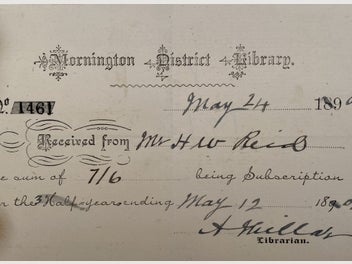 Mornington District Library.
No. 1461 May 24 189
Received from Mr H W Reid
e sum of 7/6 being Subscription
r the 3 Half-years ending May 12 18
A
Librarian.